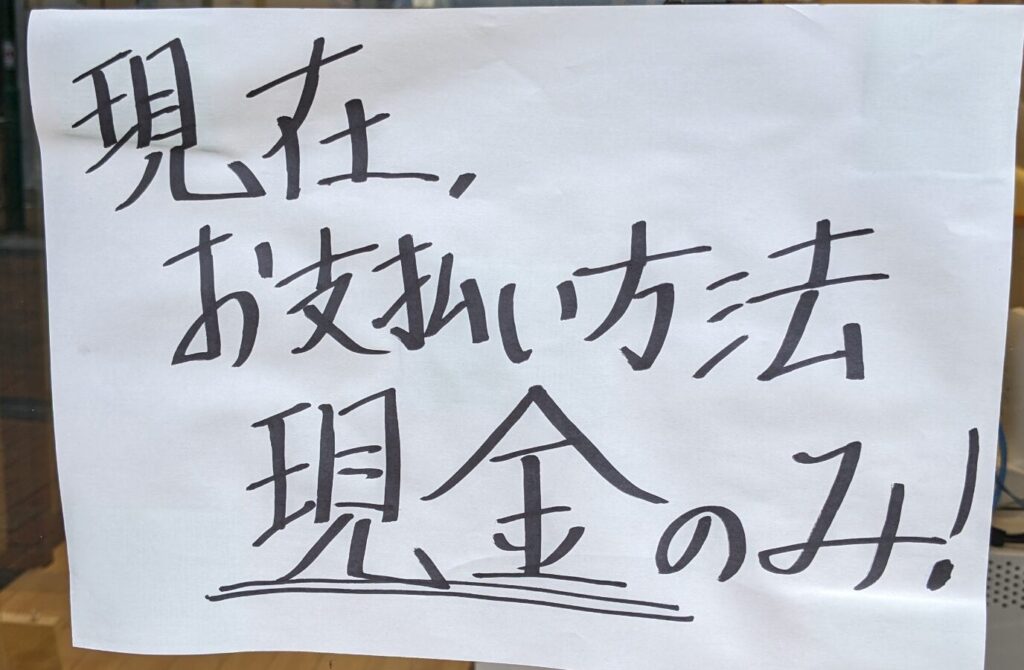 現在,
お支払い方法
現金のみ!